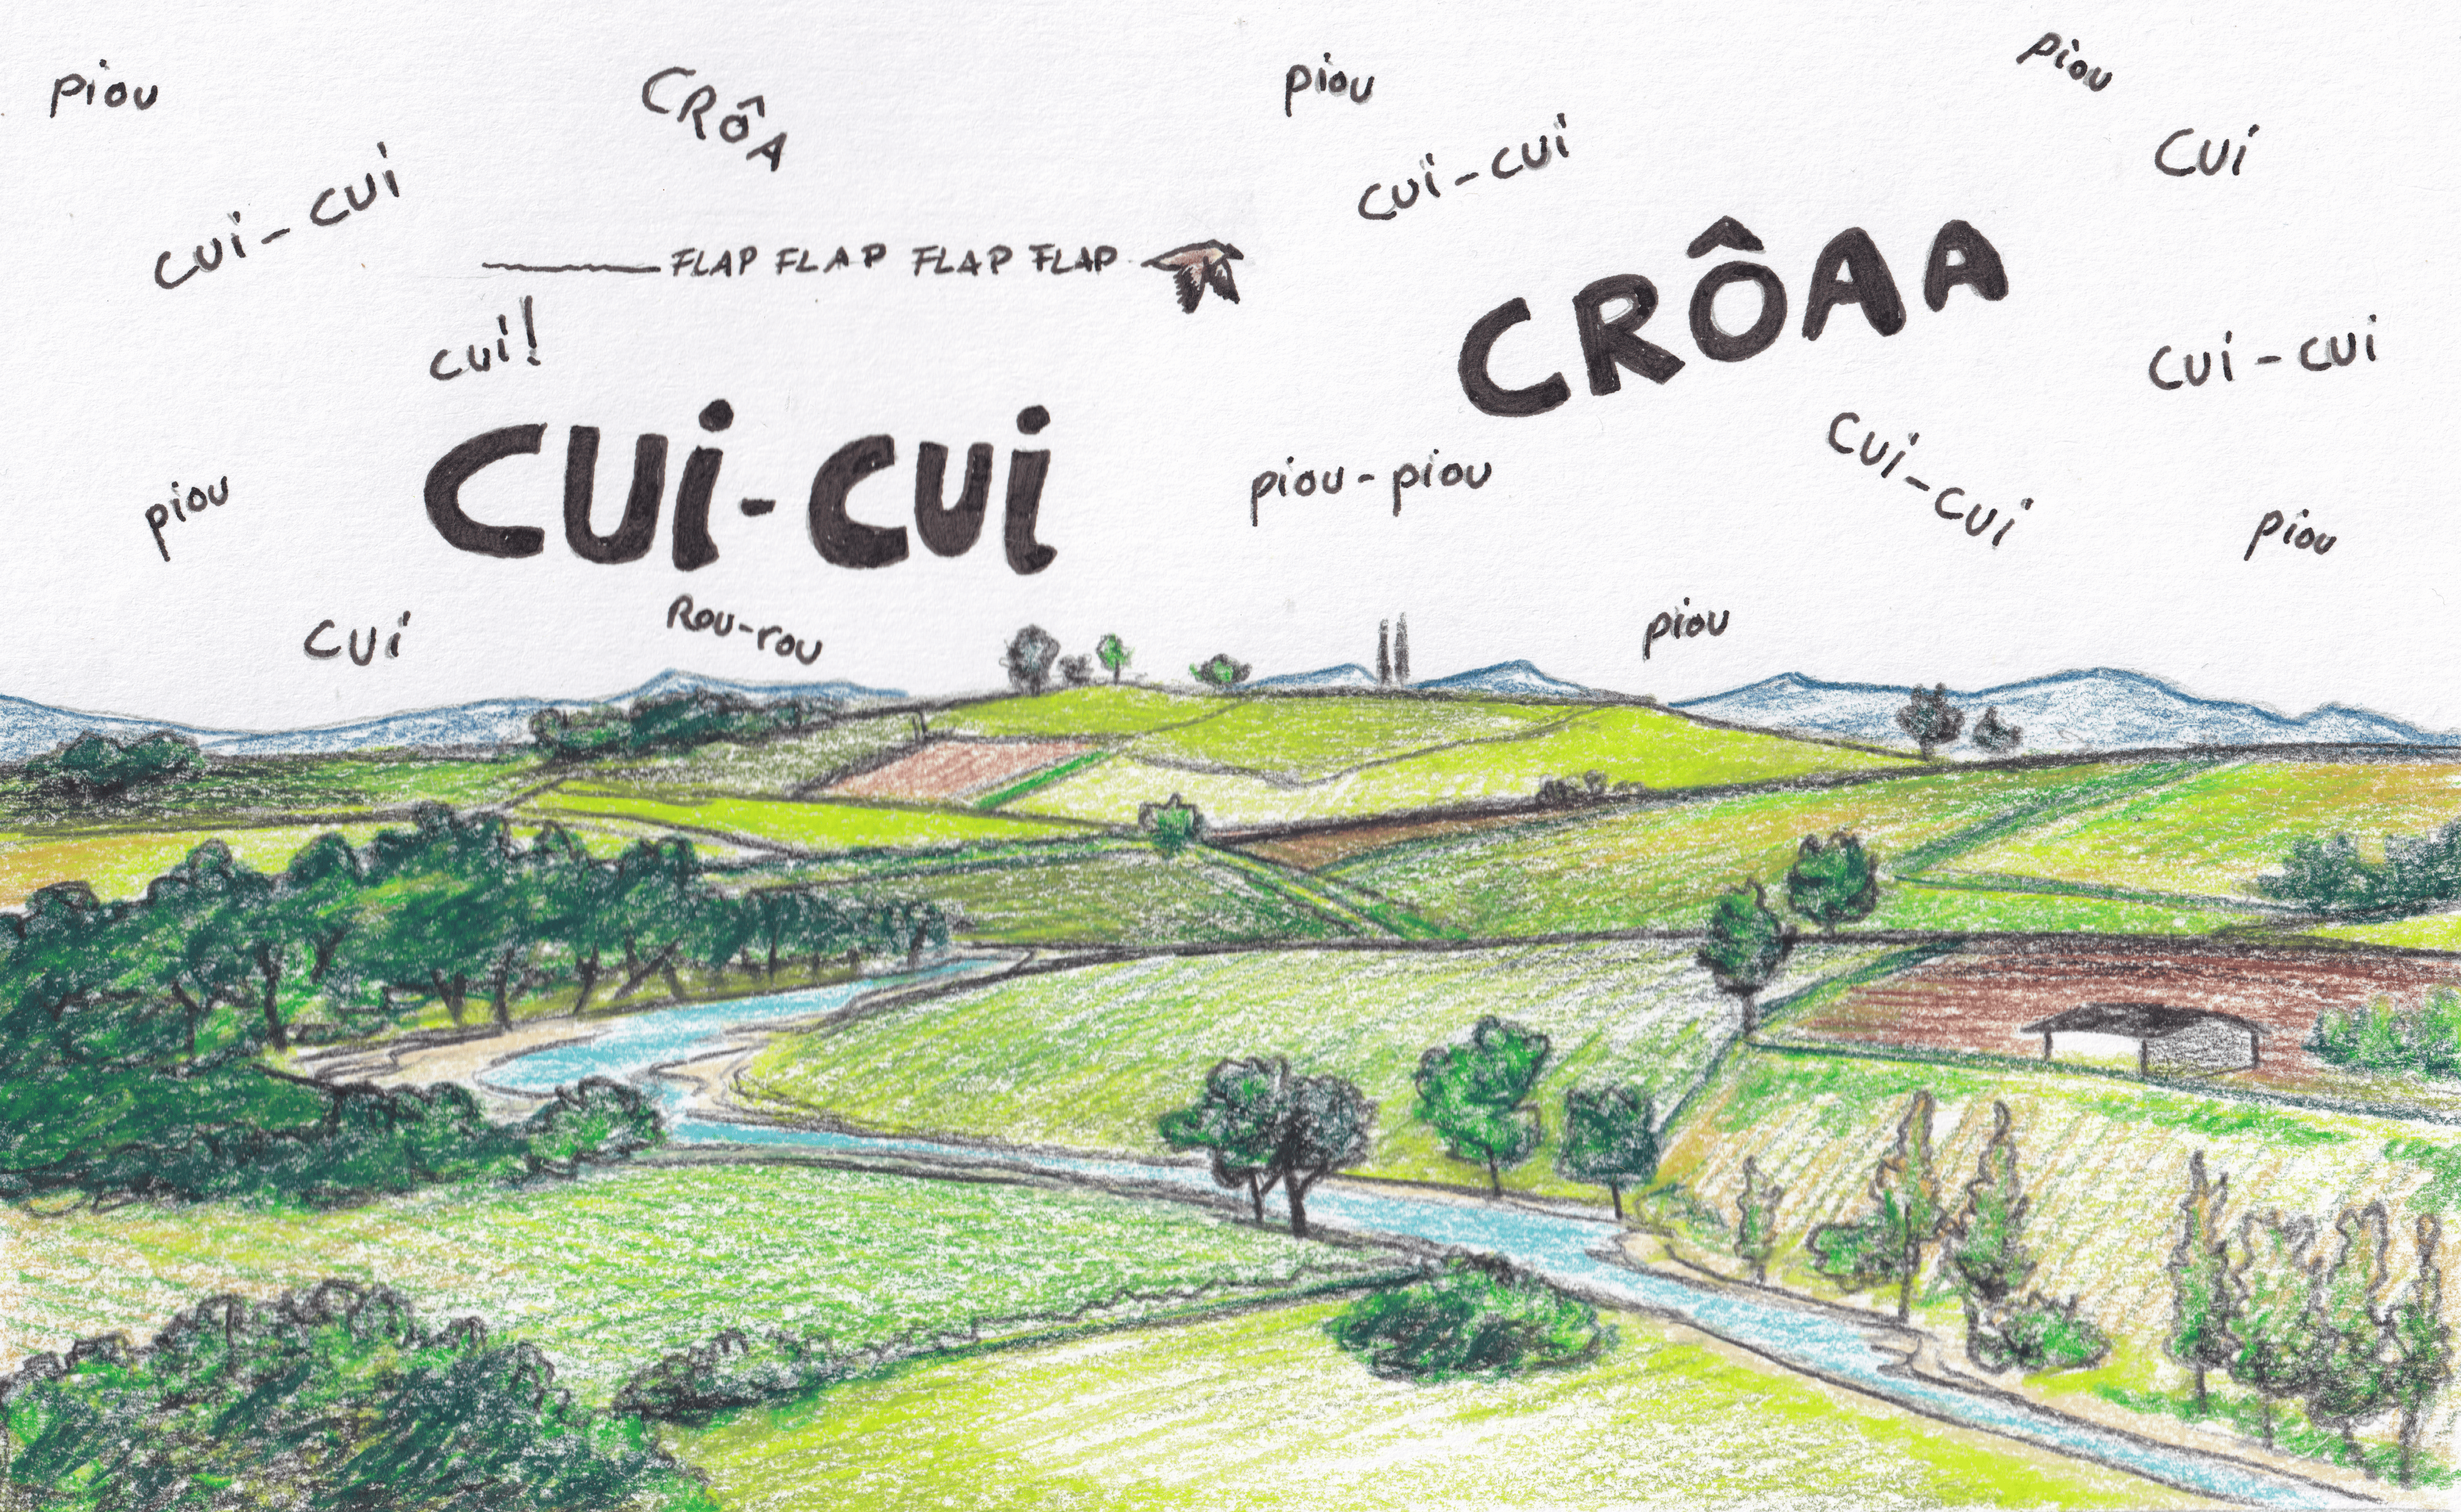 piou
CRÔA
piou
piou
cui-cui
cui-cui
cui
FLAP FLAP FLAP FLAP
CRÔAA
cui!
cui-cui
CUi-CUi
piou
piou-piou
cui-cui
piou
cui
Rou-rou
piou